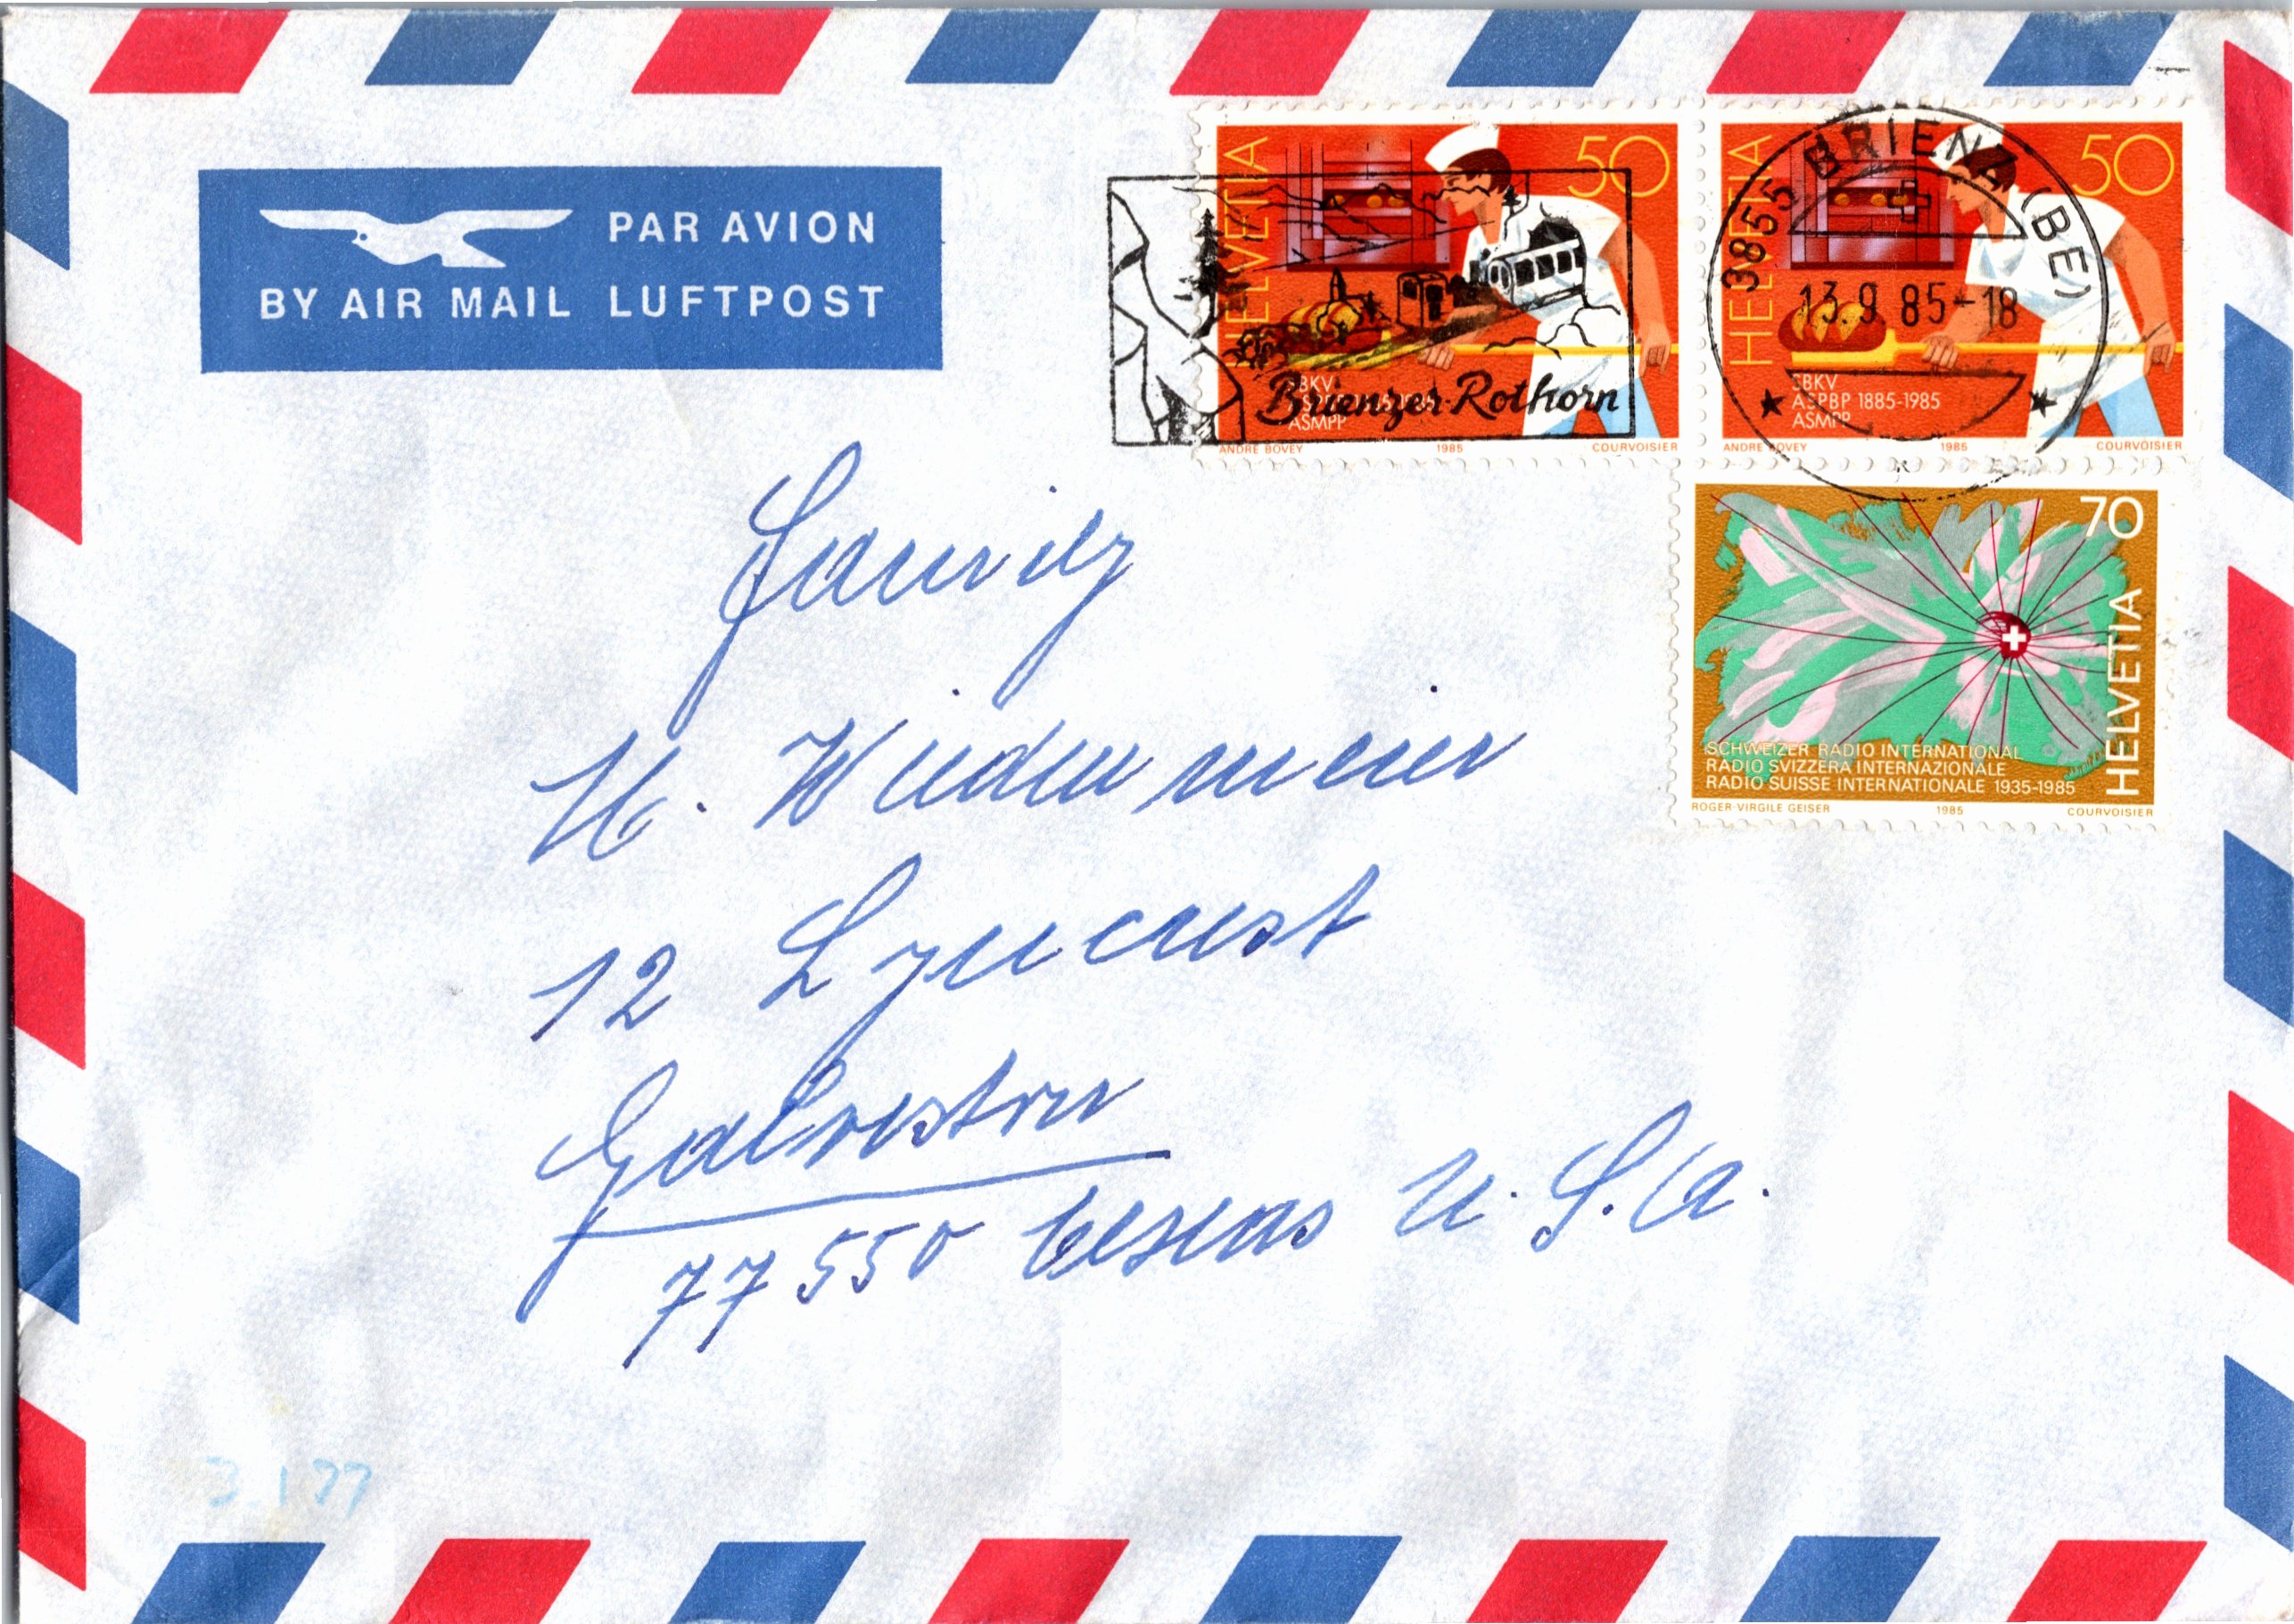 PAR AVION
BY AIR MAIL LUFTPOST
HELVETIA 50
SBKV
ASMPP
ANDRÉ BOVEY 1985 COURVOISIER
Brienzer-Rothorn
HELVETIA 50
SBKV
ASPBP 1885-1985
ASMPP
ANDRÉ BOVEY 1985 COURVOISIER
3855 BRIENZ (BE)
13.9.85-18
70
HELVETIA
SCHWEIZER RADIO INTERNATIONAL
RADIO SVIZZERA INTERNAZIONALE
RADIO SUISSE INTERNATIONALE 1935-1985
ROGER-VIRGILE GEISER 1985 COURVOISIER
Family
H. Wiedermeier
12
Galveston
77550 Texas U.S.A.